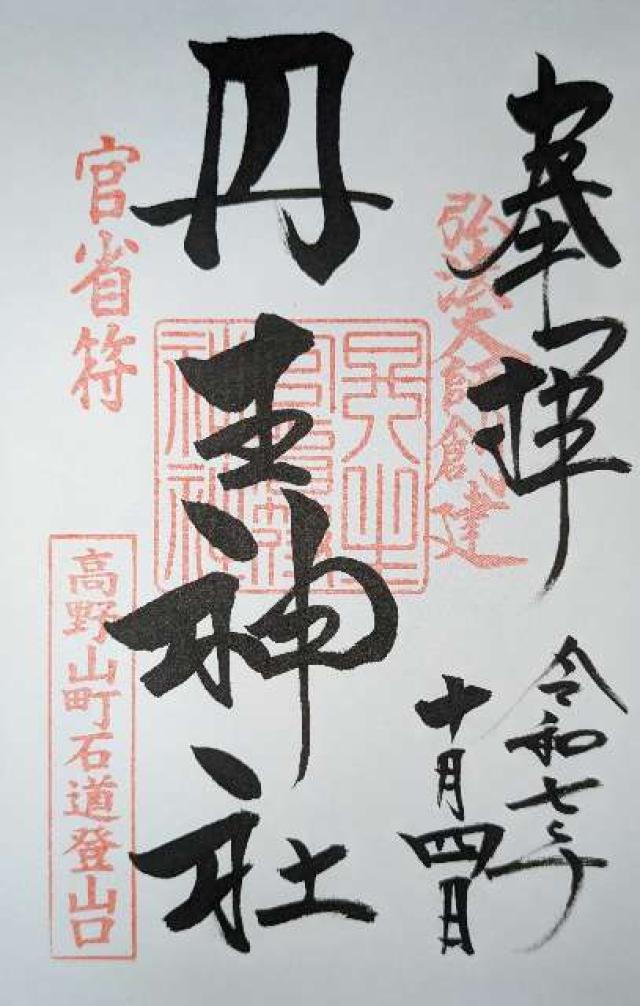 奉拝
弘法大師創建
令和七年
十月四日
丹生神社
官省符
高野山町石道登山口